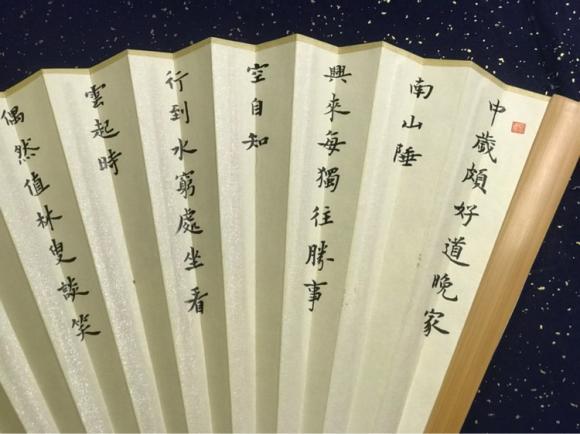 中歲頗好道晚家
南山陲
興來每獨往勝事
空自知
行到水窮處坐看
雲起時
偶然值林叟談笑